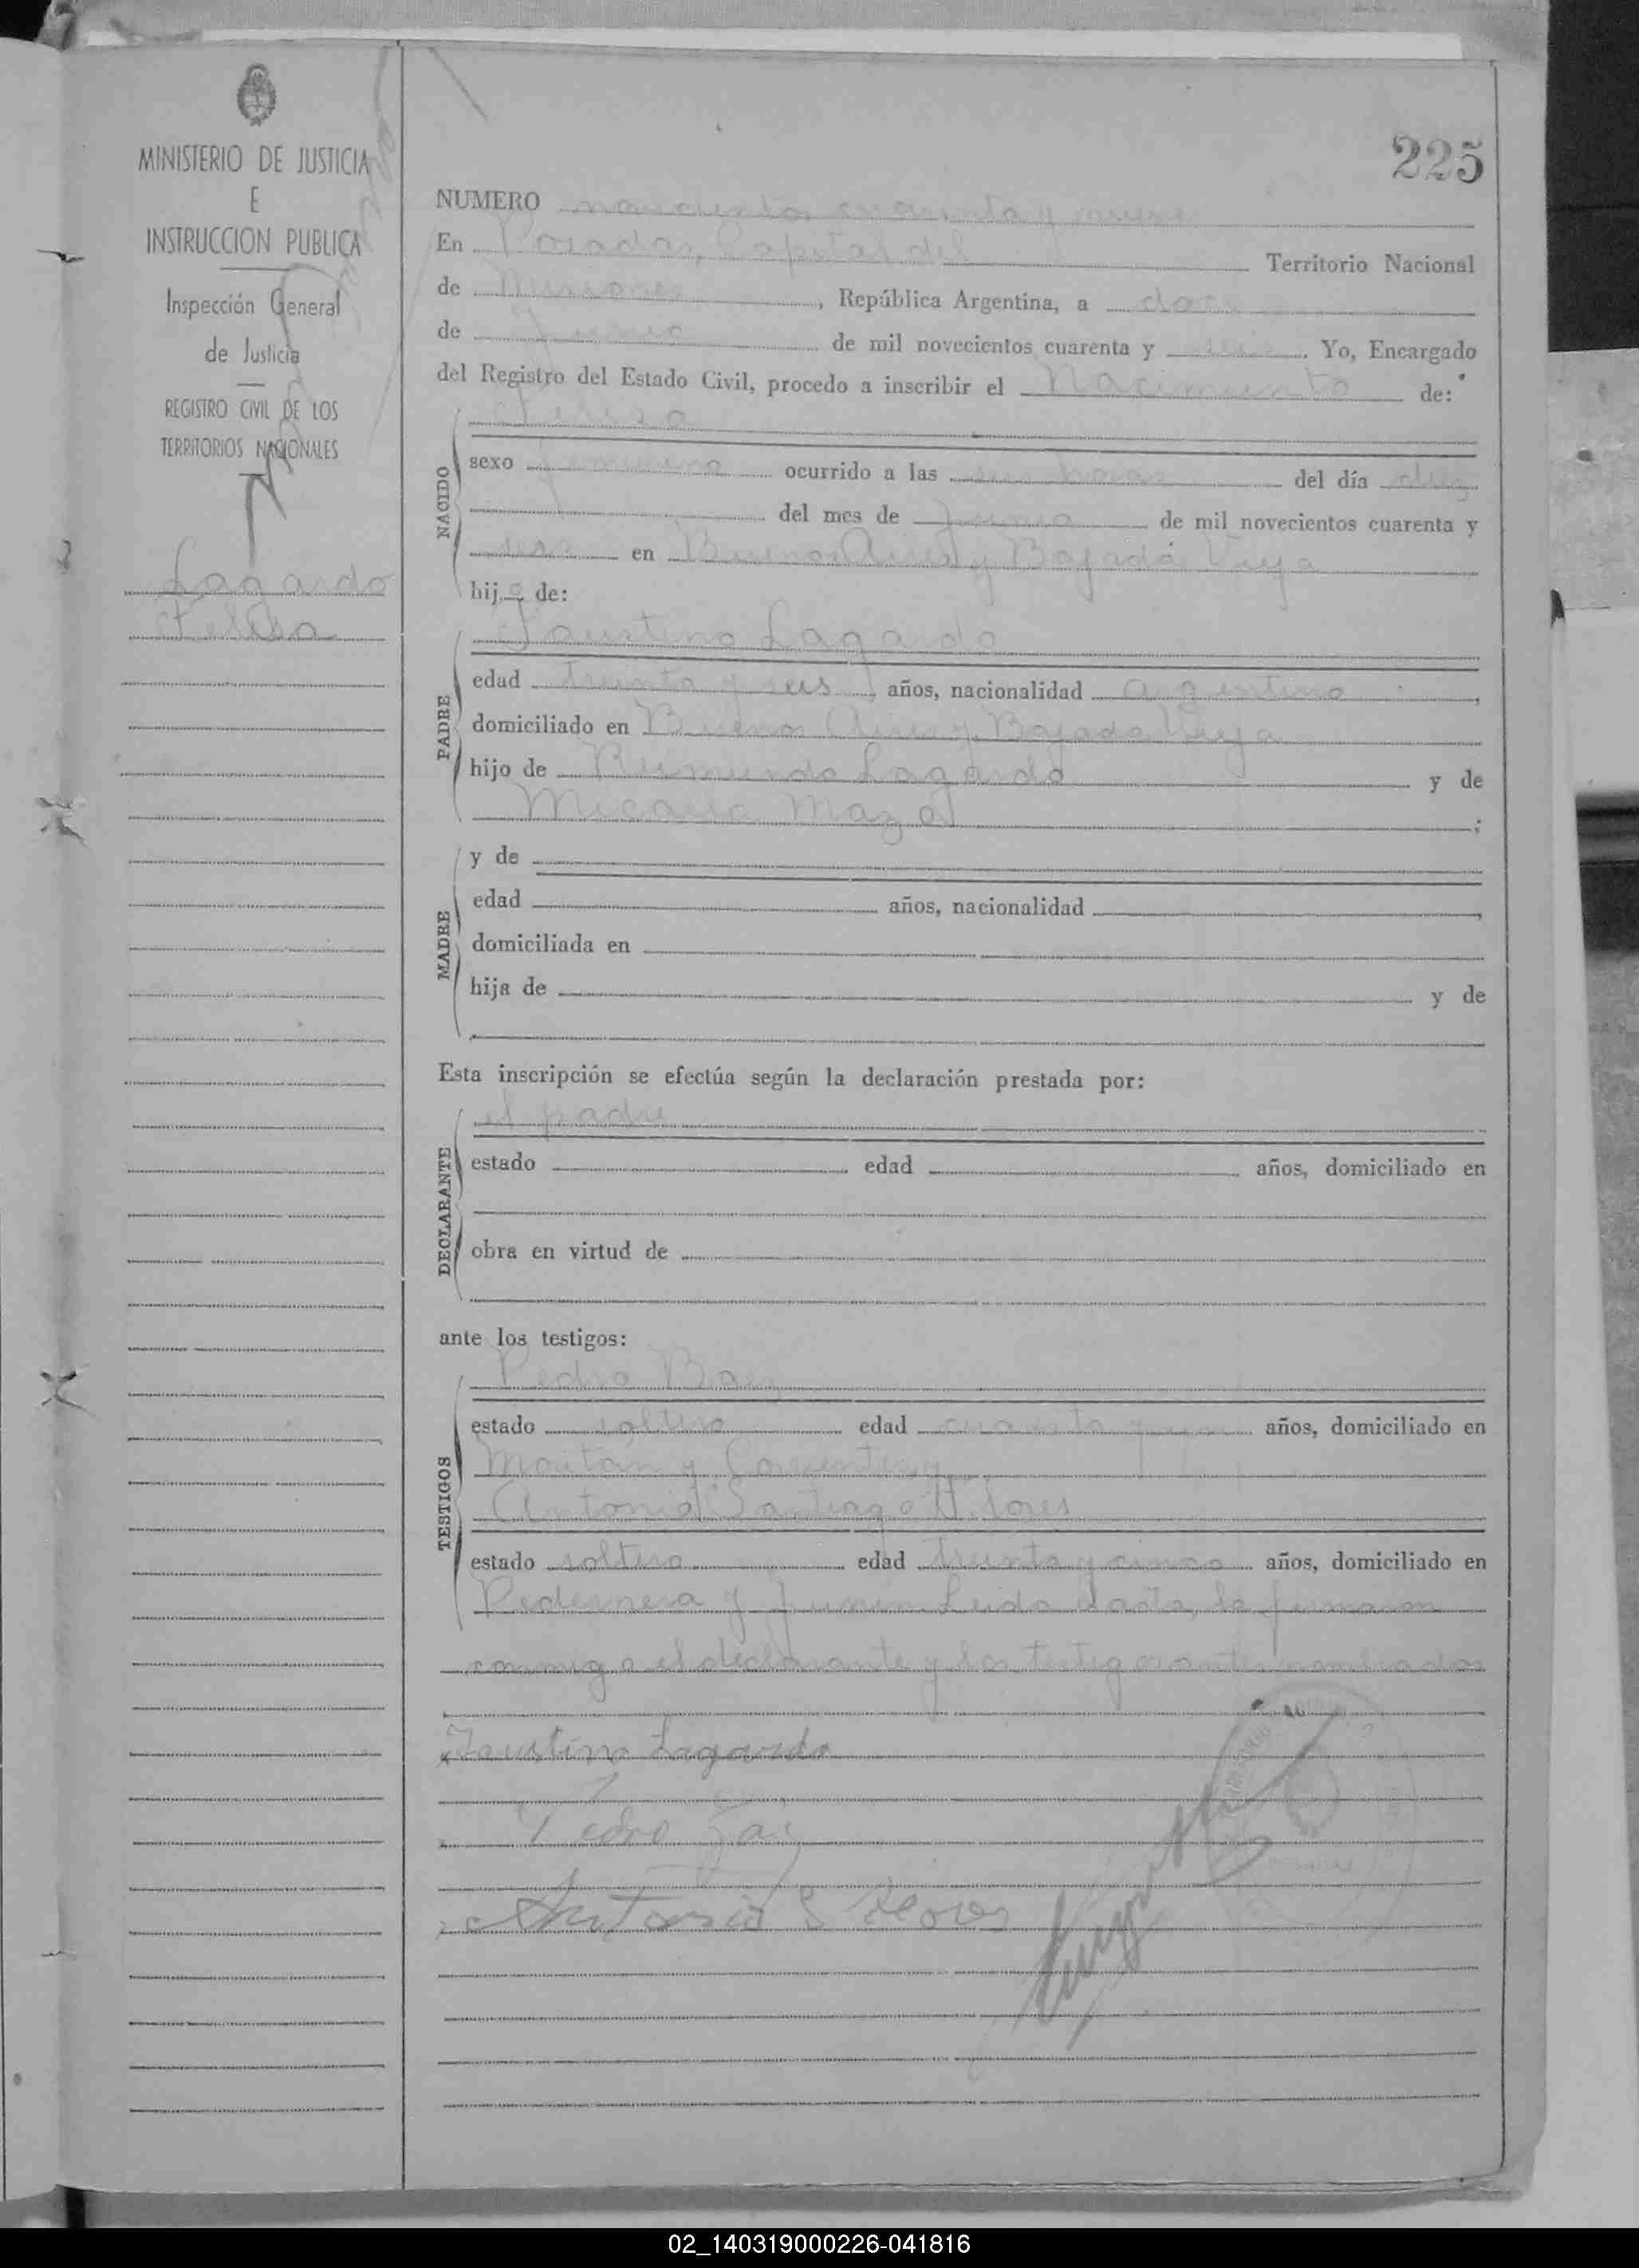 MINISTERIO DE JUSTICIA
E
INSTRUCCION PUBLICA
Inspección General
de Justicia
REGISTRO CIVIL DE LOS
TERRITORIOS NACIONALES
Lagardo
Felisa
225
NUMERO novecientos cuarenta y nueve
En Posadas, Capital del Territorio Nacional
de Misiones, República Argentina, a doce
de Junio de mil novecientos cuarenta y seis. Yo, Encargado
del Registro del Estado Civil, procedo a inscribir el Nacimiento de:
Felisa
NACIDO
sexo femenino ocurrido a las seis horas del día diez
del mes de Junio de mil novecientos cuarenta y
seis en Buenos Aires y Bajada Vieja
hija de:
PADRE
Faustino Lagardo
edad treinta y seis años, nacionalidad argentino,
domiciliado en Buenos Aires y Bajada Vieja
hijo de Reimundo Lagardo y de
Micaela Mazo;
MADRE
y de
edad años, nacionalidad ,
domiciliada en
hija de y de
Esta inscripción se efectúa según la declaración prestada por:
DECLARANTE
el padre
estado edad años, domiciliado en
obra en virtud de
ante los testigos:
TESTIGOS
Pedro Baez
estado soltero edad cuarenta y años, domiciliado en
y Corrientes y
Antonio Santiago Flores
estado soltero edad treinta y cinco años, domiciliado en
Pedernera y Junin Leida el acta, la firmaron
conmigo el declarante y los testigos antes nombrados
Faustino Lagardo
Pedro
Antonio S Flores
02_140319000226-041816